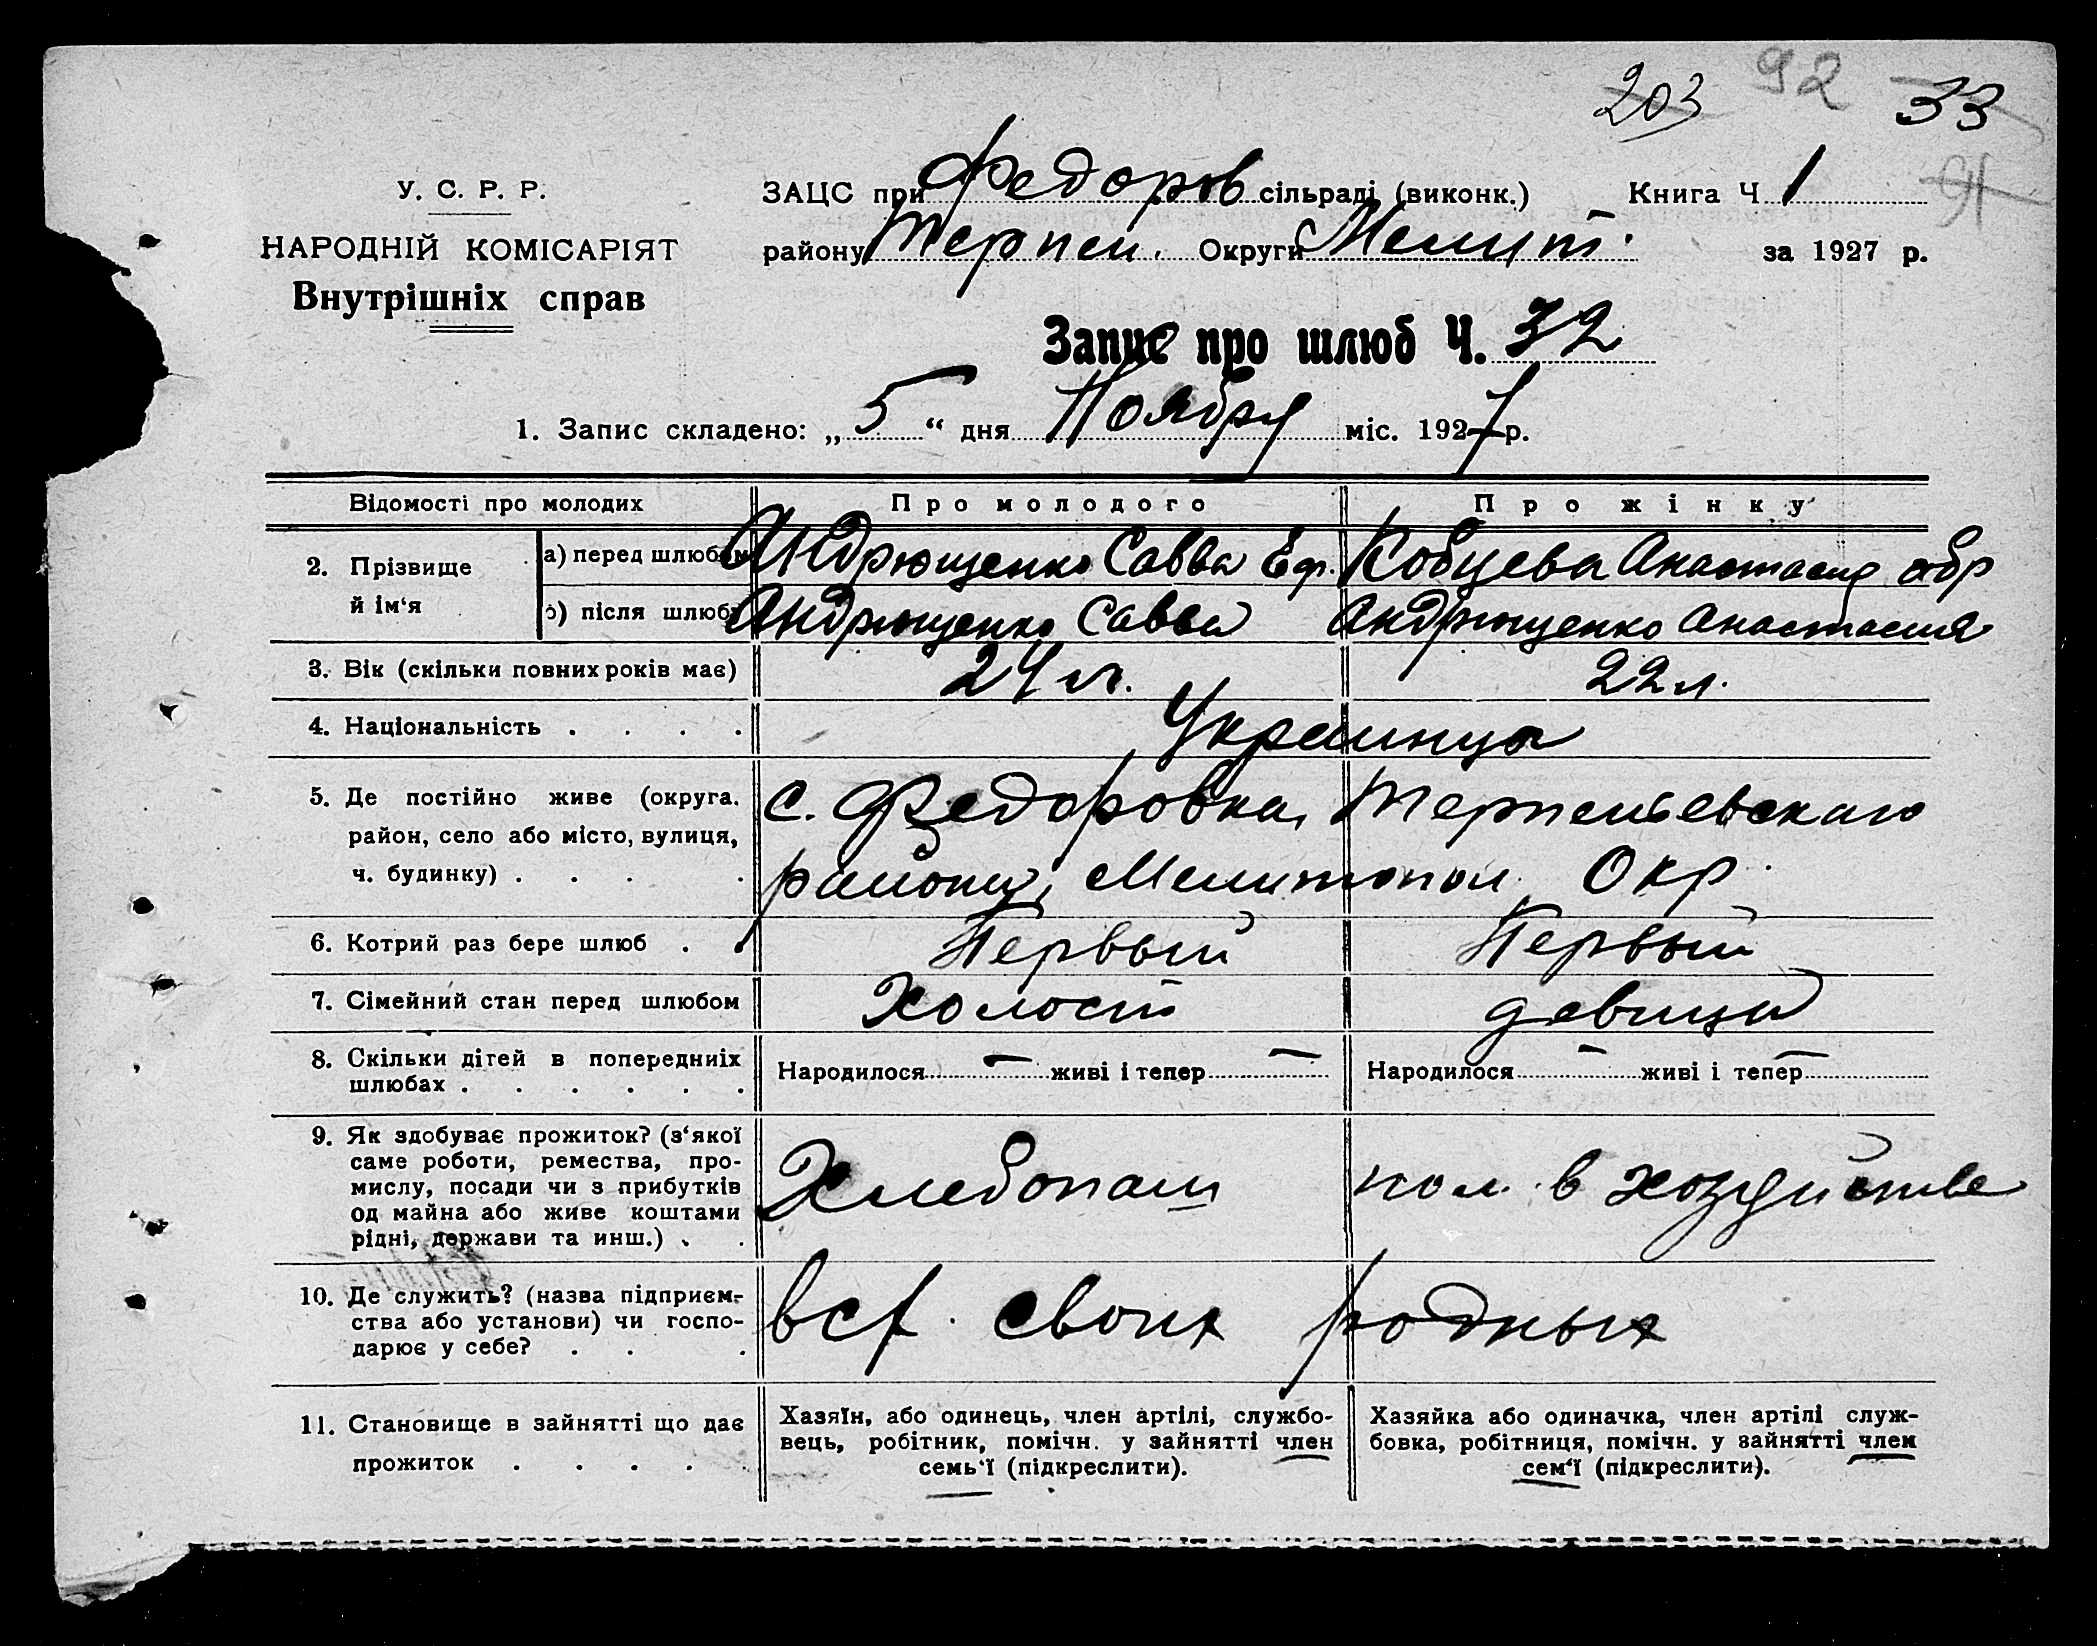 203 92 33
У. С. Р. Р. ЗАЦС при Федоров сільраді (виконк.) Книга Ч 1 91
НАРОДНІЙ КОМІСАРІЯТ району Терпен. Округи Мелит. за 1927 р.
Внутрішніх справ
Запис про шлюб Ч. 32
1. Запис складено: „ 5 “ дня Ноября міс. 1927 р.
Відомості про молодих Про молодого Про жінку
2. Прізвище й ім‘я а) перед шлюбом Андрющенко Савва Еф. Кобцева Анастасия
б) після шлюбу Андрющенко Савва Андрющенко Анастасия
3. Вік (скільки повних років має) 24 л. 22 л.
4. Національність . . . . Украинцы
5. Де постійно живе (округа, с. Федоровка, Терпеньевскаго
район, село або місто, вулиця,
ч. будинку) . . . . района, Мелитопол. Окр.
6. Котрий раз бере шлюб . . Первый Первый
7. Сімейний стан перед шлюбом Холост девица
8. Скільки дітей в попередниіх Народилося — живі і тепер — Народилося — живі і тепер —
шлюбах . . . . . .
9. Як здобуває прожиток? (з‘якої
саме роботи, ремества, про-
мислу, посади чи з прибутків Хлебопаш пом. в хозяйстве
од майна або живе коштами
рідні, держави та инш.) . .
10. Де служить? (назва підприєм-
ства або установи) чи госпо- своих родных
дарює у себе? . . .
11. Становище в зайнятті що дає Хазяїн, або одинець, член артілі, службо- Хазяйка або одиначка, член артілі служ-
вець, робітник, помічн. у зайнятті член бовка, робітниця, помічн. у зайнятті член
прожиток . . . . . семь‘ї (підкреслити). сем‘ї (підкреслити).